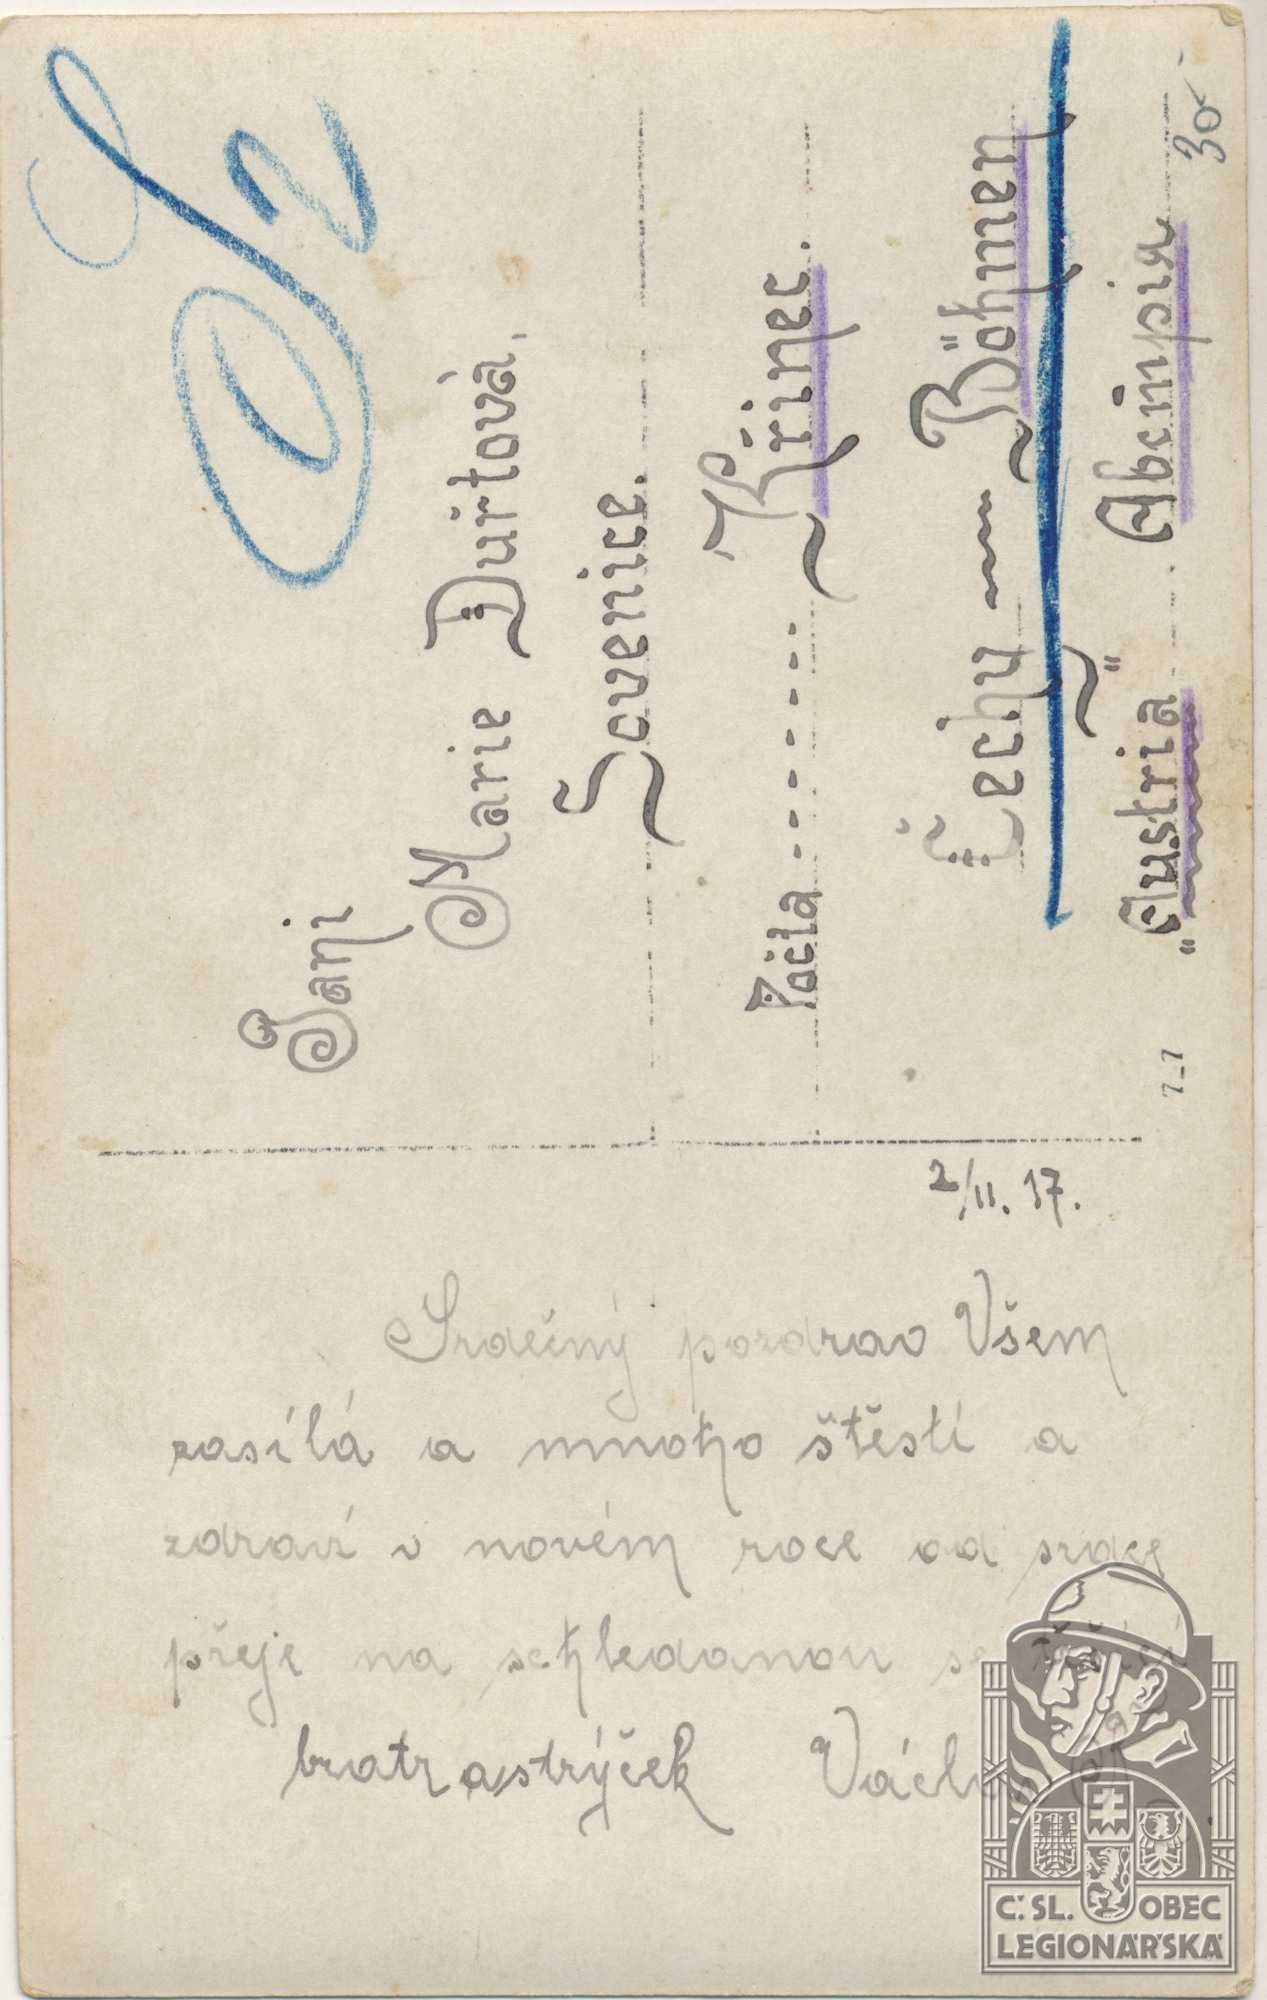 Paní
Marie Duřtová,
Šovenice.
Pošta ........ Křinec.
Čechy — Böhmen
"Austria" Австрія
30
7-7
2/II. 17.
Srdečný pozdrav Všem
zasílá a mnoho štěstí a
zdraví v novém roce od srdce
přeje na schledanou se těšící
bratr a strýček Václav
Č. SL. OBEC
LEGIONÁŘSKÁ